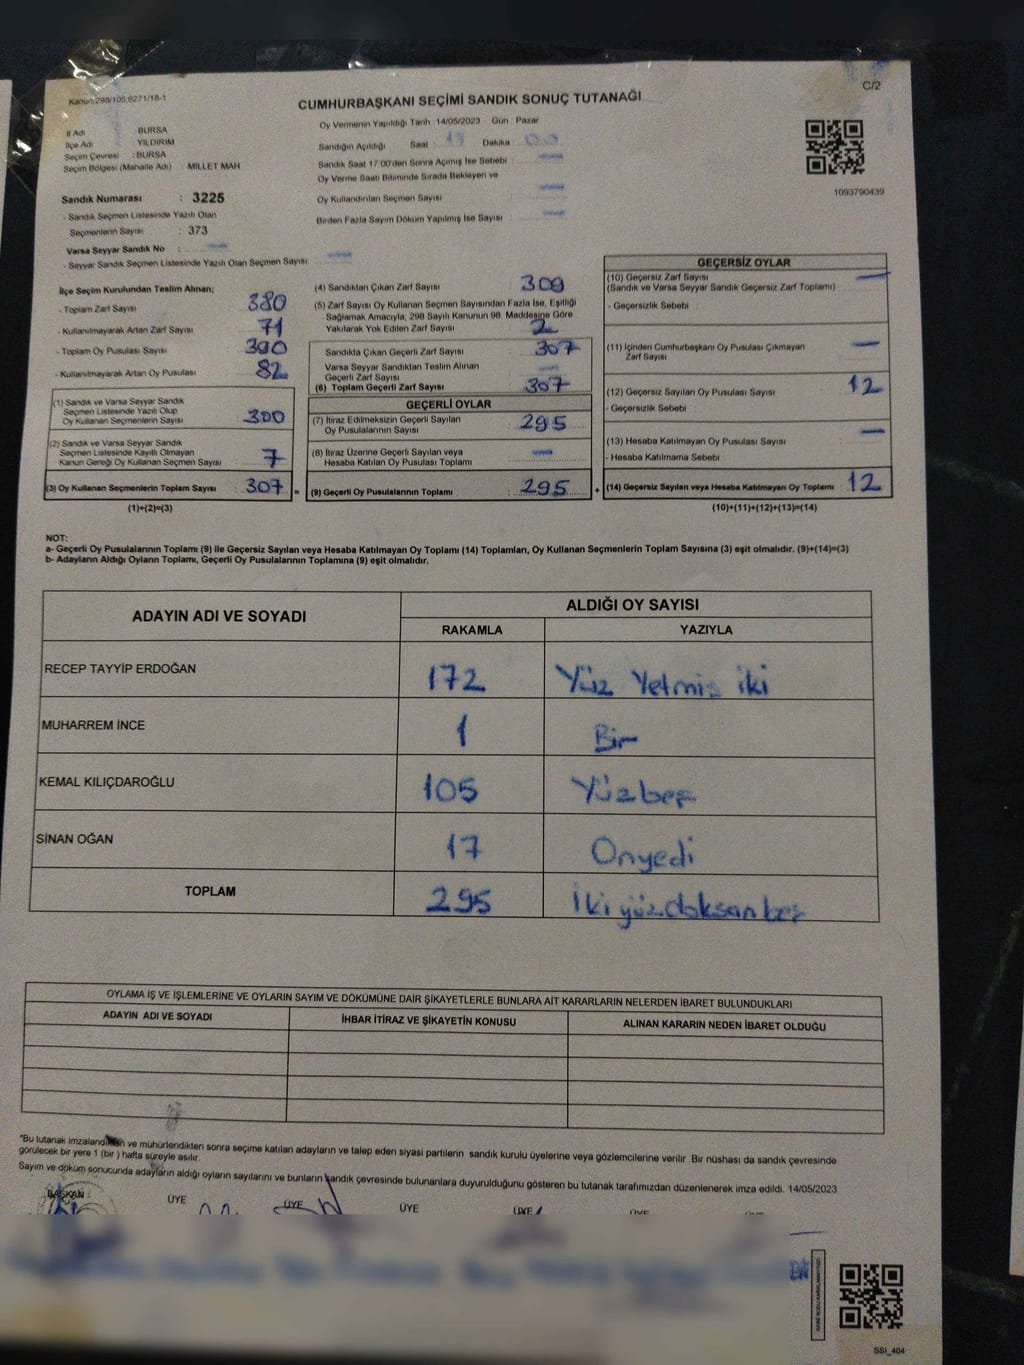 Kanun:298/105,6271/18-1
C/2
CUMHURBAŞKANI SEÇİMİ SANDIK SONUÇ TUTANAĞI
İl Adı BURSA
İlçe Adı YILDIRIM
Seçim Çevresi : BURSA
Seçim Bölgesi (Mahalle Adı) MİLLET MAH
Sandık Numarası : 3225
- Sandık Seçmen Listesinde Yazılı Olan
Seçmenlerin Sayısı : 373
Varsa Seyyar Sandık No :
- Seyyar Sandık Seçmen Listesinde Yazılı Olan Seçmen Sayısı:
Oy Vermenin Yapıldığı Tarih : 14/05/2023 Gün : Pazar
Sandığın Açıldığı Saat 17 Dakika 00
Sandık Saat 17 00'den Sonra Açımış İse Sebebi
Oy Verme Saati Bitiminde Sırada Bekleyen ve
Oy Kullandırılan Seçmen Sayısı
Birden Fazla Sayım Döküm Yapılmış İse Sayısı
1093790439
İlçe Seçim Kurulundan Teslim Alınan;
- Toplam Zarf Sayısı : 380
- Kullanılmayarak Artan Zarf Sayısı : 71
- Toplam Oy Pusulası Sayısı : 390
- Kullanılmayarak Artan Oy Pusulası : 82
(1) Sandık ve Varsa Seyyar Sandık
Seçmen Listesinde Yazılı Olup
Oy Kullanan Seçmenlerin Sayısı : 300
(2) Sandık ve Varsa Seyyar Sandık
Seçmen Listesinde Kayıtlı Olmayan
Kanun Gereği Oy Kullanan Seçmen Sayısı : 7
(3) Oy Kullanan Seçmenlerin Toplam Sayısı : 307
(1)+(2)=(3)
(4) Sandıktan Çıkan Zarf Sayısı : 309
(5) Zarf Sayısı Oy Kullanan Seçmen Sayısından Fazla İse, Eşitliği
Sağlamak Amacıyla, 298 Sayılı Kanunun 98. Maddesine Göre
Yakılarak Yok Edilen Zarf Sayısı : 2
Sandıkta Çıkan Geçerli Zarf Sayısı : 307
Varsa Seyyar Sandıktan Teslim Alınan
Geçerli Zarf Sayısı
(6) Toplam Geçerli Zarf Sayısı : 307
GEÇERLİ OYLAR
(7) İtiraz Edilmeksizin Geçerli Sayılan
Oy Pusulalarının Sayısı : 295
(8) İtiraz Üzerine Geçerli Sayılan veya
Hesaba Katılan Oy Pusulası Toplamı
= (9) Geçerli Oy Pusulalarının Toplamı : 295 +
GEÇERSİZ OYLAR
(10) Geçersiz Zarf Sayısı
(Sandık ve Varsa Seyyar Sandık Geçersiz Zarf Toplamı)
- Geçersizlik Sebebi :
(11) İçinden Cumhurbaşkanı Oy Pusulası Çıkmayan
Zarf Sayısı
(12) Geçersiz Sayılan Oy Pusulası Sayısı : 12
- Geçersizlik Sebebi
(13) Hesaba Katılmayan Oy Pusulası Sayısı
- Hesaba Katılmama Sebebi
(14) Geçersiz Sayılan veya Hesaba Katılmayan Oy Toplamı : 12
(10)+(11)+(12)+(13)=(14)
NOT:
a- Geçerli Oy Pusulalarının Toplamı (9) ile Geçersiz Sayılan veya Hesaba Katılmayan Oy Toplamı (14) Toplamları, Oy Kullanan Seçmenlerin Toplam Sayısına (3) eşit olmalıdır. (9)+(14)=(3)
b- Adayların Aldığı Oyların Toplamı, Geçerli Oy Pusulalarının Toplamına (9) eşit olmalıdır.
ADAYIN ADI VE SOYADI
ALDIĞI OY SAYISI
RAKAMLA YAZIYLA
RECEP TAYYİP ERDOĞAN 172 Yüz Yetmiş iki
MUHARREM İNCE 1 Bir
KEMAL KILIÇDAROĞLU 105 Yüzbeş
SİNAN OĞAN 17 Onyedi
TOPLAM 295 ikiyüzdoksanbeş
OYLAMA İŞ VE İŞLEMLERİNE VE OYLARIN SAYIM VE DÖKÜMÜNE DAİR ŞİKAYETLERLE BUNLARA AİT KARARLARIN NELERDEN İBARET BULUNDUKLARI
ADAYIN ADI VE SOYADI İHBAR İTİRAZ VE ŞİKAYETİN KONUSU ALINAN KARARIN NEDEN İBARET OLDUĞU
*Bu tutanak imzalandıktan ve mühürlendikten sonra seçime katılan adayların ve talep eden siyasi partilerin sandık kurulu üyelerine veya gözlemcilerine verilir. Bir nüshası da sandık çevresinde
görülecek bir yere 1 (bir ) hafta süreyle asılır.
Sayım ve döküm sonucunda adayların aldığı oyların sayılarını ve bunların sandık çevresinde bulunanlara duyurulduğunu gösteren bu tutanak tarafımızdan düzenlenerek imza edildi. 14/05/2023
BAŞKAN ÜYE ÜYE ÜYE ÜYE ÜYE ÜYE
SSİ_404